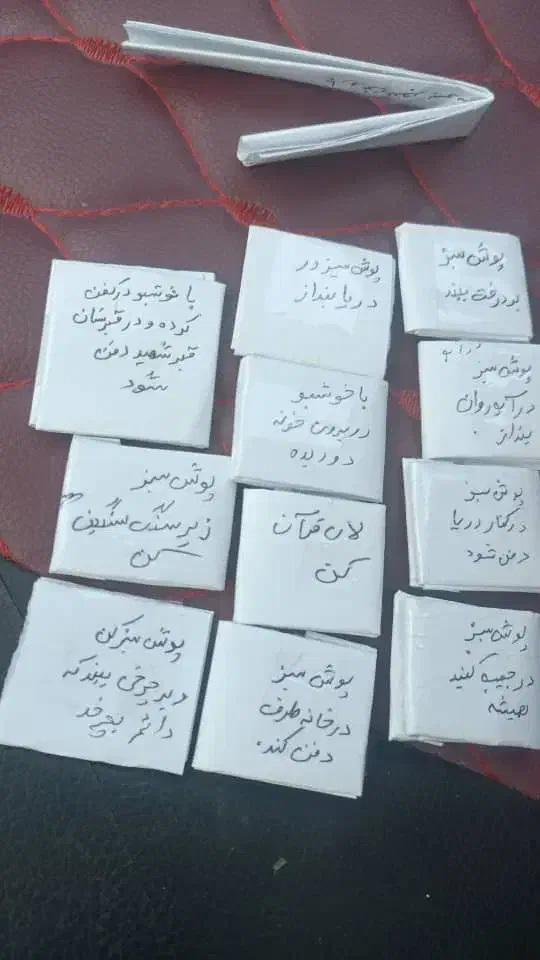 پوش سبز
بر درخت ببند
پوش سبز در
دریا بنداز
با خوشبو در کفن
کرده و در قبرستان
قبر شهید دفن
شود
پوش سبز
در آب روان
بنداز
با خوشبو
در بیرون خونه
دور بده
پوش سبز
در کنار دریا
دفن شود
پوش سبز
زیر سنگ سنگین
کن
لای قرآن
کن
پوش سبز
در جیب کنید
همیشه
پوش سبز
در خانه طرف
دفن کند.
پوش سبز کن
و بر چرخی ببند که
دائم بچرخد